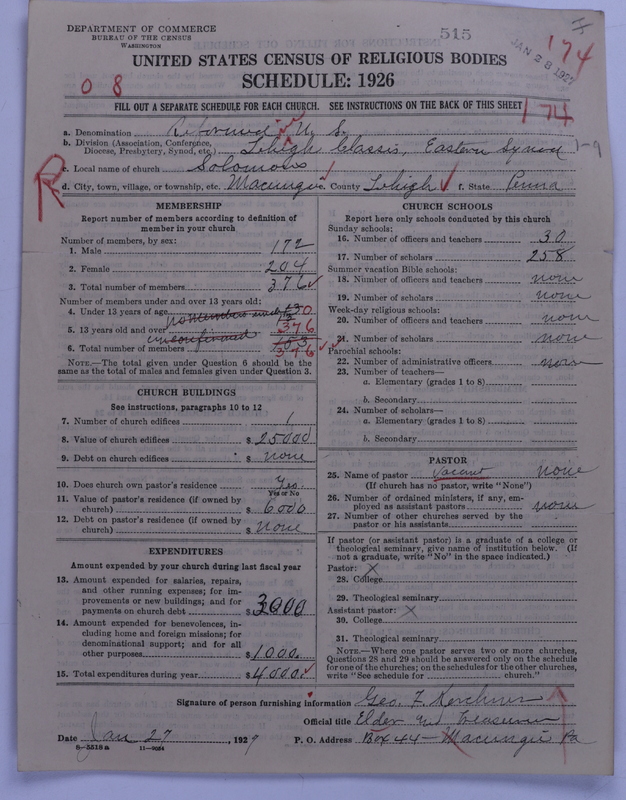 DEPARTMENT OF COMMERCE
BUREAU OF THE CENSUS
WASHINGTON
515
JAN 28 1927
174
UNITED STATES CENSUS OF RELIGIOUS BODIES
SCHEDULE: 1926
0 8
FILL OUT A SEPARATE SCHEDULE FOR EACH CHURCH. SEE INSTRUCTIONS ON THE BACK OF THIS SHEET
174
a. Denomination Reformed U. S.
b. Division (Association, Conference, Diocese, Presbytery, Synod, etc.) Lehigh Classis, Eastern Synod 1-9
c. Local name of church Solomons
d. City, town, village, or township, etc. Macungie e. County Lehigh f. State Penna
MEMBERSHIP
Report number of members according to definition of member in your church
Number of members, by sex:
1. Male 172
2. Female 204
3. Total number of members 376
Number of members under and over 13 years old:
4. Under 13 years of age 0
5. 13 years old and over 376
unconfirmed
6. Total number of members 376
NOTE.—The total given under Question 6 should be same as the total of males and females given under Question 3.
CHURCH BUILDINGS
See instructions, paragraphs 10 to 12
7. Number of church edifices 1
8. Value of church edifices $ 25000
9. Debt on church edifices $ none
10. Does church own pastor's residence Yes.
Yes or No
11. Value of pastor's residence (if owned by church) $ 6000
12. Debt on pastor's residence (if owned by church) $ none
EXPENDITURES
Amount expended by your church during last fiscal year
13. Amount expended for salaries, repairs, and other running expenses; for improvements or new buildings; and for payments on church debt $ 3000
14. Amount expended for benevolences, including home and foreign missions; for denominational support; and for all other purposes $ 1000.
15. Total expenditures during year $ 4000.
CHURCH SCHOOLS
Report here only schools conducted by this church
Sunday schools:
16. Number of officers and teachers 30
17. Number of scholars 258
Summer vacation Bible schools:
18. Number of officers and teachers none
19. Number of scholars none
Week-day religious schools:
20. Number of officers and teachers none
21. Number of scholars none
Parochial schools:
22. Number of administrative officers none
23. Number of teachers—
a. Elementary (grades 1 to 8)
b. Secondary
24. Number of scholars—
a. Elementary (grades 1 to 8)
b. Secondary
PASTOR
25. Name of pastor Vacant none
(If church has no pastor, write "None")
26. Number of ordained ministers, if any, employed as assistant pastors none
27. Number of other churches served by the pastor or his assistants
If pastor (or assistant pastor) is a graduate of a college or theological seminary, give name of institution below. (If not a graduate, write "No" in the space indicated.)
Pastor: X
28. College
29. Theological seminary
Assistant pastor: X
30. College
31. Theological seminary
NOTE.—Where one pastor serves two or more churches, Questions 28 and 29 should be answered only on the schedule for one of the churches; on the schedules for the other churches, write "See schedule for church."
Signature of person furnishing information Geo. F. Kerchner
Official title Elder and Treasurer
Date Jan 27, 1927 P. O. Address Box 44 - Macungie Pa
8-5518a 11-9034